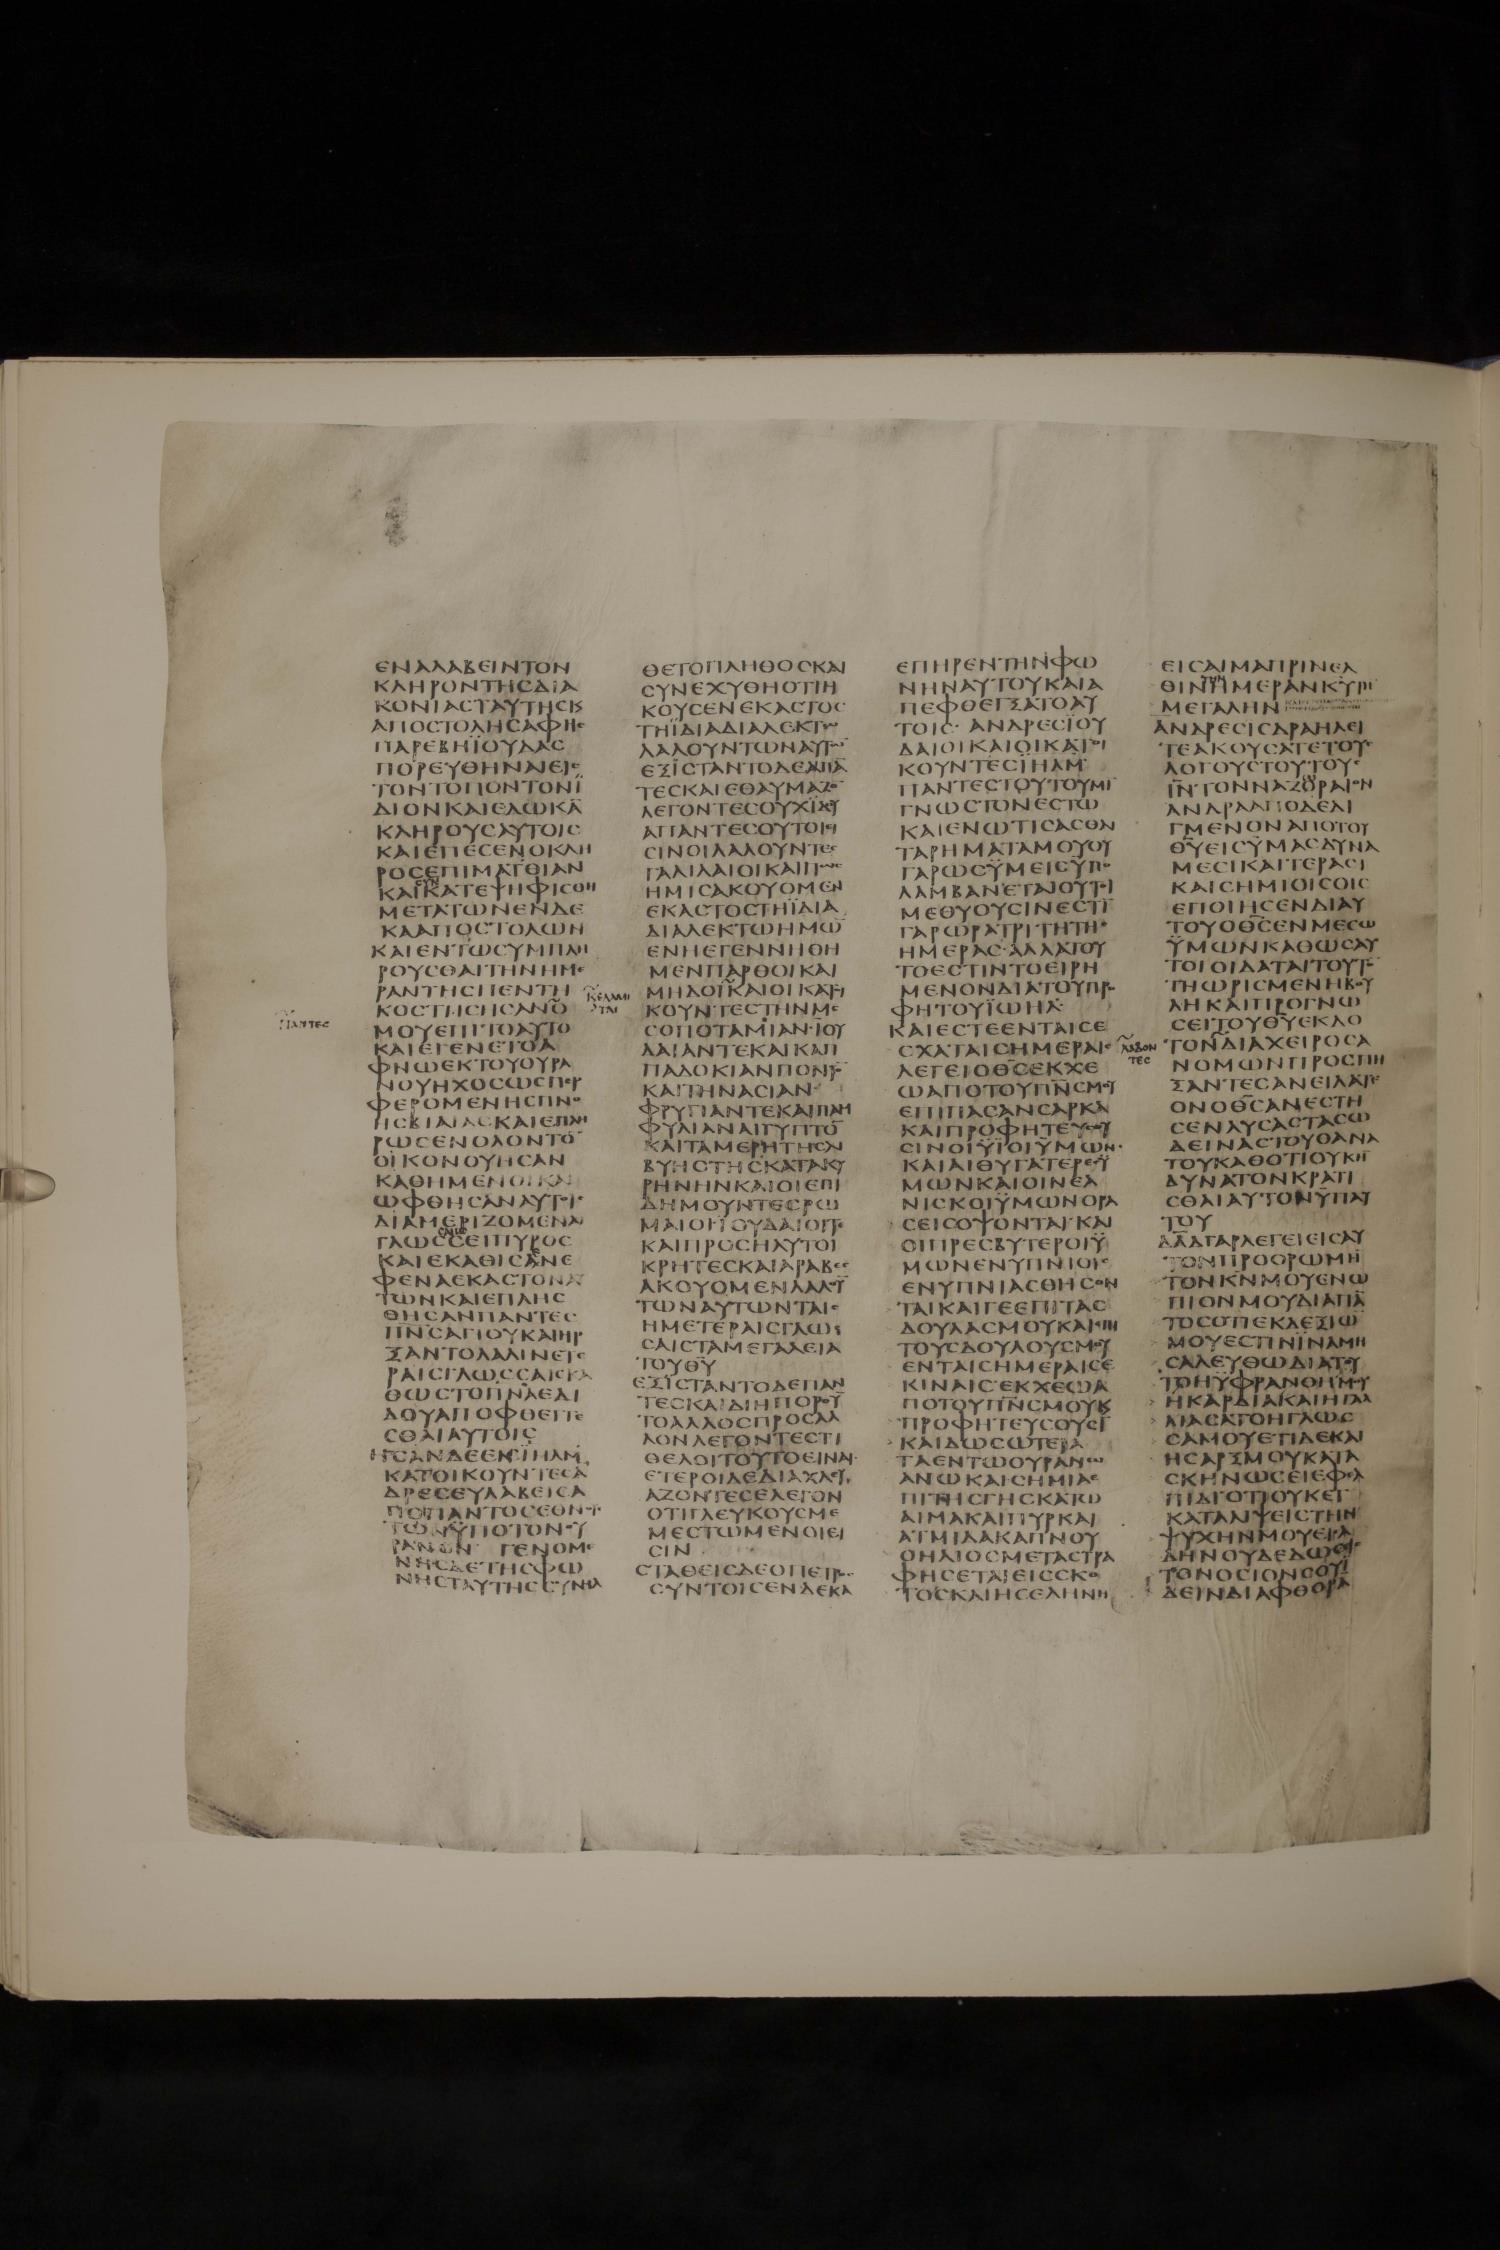 ΕΝΑΛΑΒΕΙΝΤΟΝ
ΚΛΗΡΟΝΤΗϹΔΙΑ
ΚΟΝΙΑϹΤΑΥΤΗϹΚ
ΑΠΟϹΤΟΛΗϹΑΦΗϹ
ΠΑΡΕΒΗΪΟΥΔΑϹ
ΠΟΡΕΥΘΗΝΑΙΕΙϹ
ΤΟΝΤΟΠΟΝΤΟΝΪ
ΔΙΟΝΚΑΙΕΔΩΚΑ̅
ΚΛΗΡΟΥϹΑΥΤΟΙϹ
ΚΑΙΕΠΕϹΕΝΟΚΛΗ
ΡΟϹΕΠΙΜΑΤΘΙΑΝ
ΚΑΙΚΑΤΕΨΗΦΙϹΘΗ
ΜΕΤΑΤΩΝΕΝΔΕ
ΚΑΑΠΟϹΤΟΛΩΝ
ΚΑΙΕΝΤΩϹΥΜΠΛΗ
ΡΟΥϹΘΑΙΤΗΝΗΜΕ
ΡΑΝΤΗϹΠΕΝΤΗ
ΚΟϹΤΗϹΗϹΑΝΟ̅
ΠΑΝΤΕϹ
ΜΟΥΕΠΙΤΟΑΥΤΟ
ΚΑΙΕΓΕΝΕΤΟΑ
ΦΝΩΕΚΤΟΥΟΥΡΑ
ΝΟΥΗΧΟϹΩϹΠΕΡ
ΦΕΡΟΜΕΝΗϹΠΝΟ
ΗϹΒΙΑΙΑϹΚΑΙΕΠΛΗ
ΡΩϹΕΝΟΛΟΝΤΟ̅
ΟΙΚΟΝΟΥΗϹΑΝ
ΚΑΘΗΜΕΝΟΙΚΑΙ
ΩΦΘΗϹΑΝΑΥΤΟΙϹ
ΔΙΑΜΕΡΙΖΟΜΕΝΑΙ
ΓΛΩϹϹΕΙΠΥΡΟϹ
ΚΑΙΕΚΑΘΙϹΑΝΕ
ΦΕΝΑΕΚΑϹΤΟΝΑΥ
ΤΩΝΚΑΙΕΠΛΗϹ
ΘΗϹΑΝΠΑΝΤΕϹ
Π̅Ν̅ϹΑΓΙΟΥΚΑΙΗΡ
ΞΑΝΤΟΛΑΛΙΝΕΤΕ
ΡΑΙϹΓΛΩϹϹΑΙϹΚΑ
ΘΩϹΤΟΠ̅Ν̅ΑΕΔΙ
ΔΟΥΑΠΟΦΘΕΓΓΕ
ϹΘΑΙΑΥΤΟΙϹ
ΗϹΑΝΔΕΕΝΪΗΛΜ
ΚΑΤΟΙΚΟΥΝΤΕϹΑ
ΔΡΕϹΕΥΛΑΒΕΙϹΑ
ΠΟΠΑΝΤΟϹΕΘΝΟΥϹ
ΤΩΝΫΠΟΤΟΝΟΥ
ΡΑΝΟΝ ΓΕΝΟΜΕ
ΝΗϹΔΕΤΗϹΦΩ
ΝΗϹΤΑΥΤΗϹϹΥΝΗΛ
ΘΕΤΟΠΛΗΘΟϹΚΑΙ
ϹΥΝΕΧΥΘΗΟΤΙΗ
ΚΟΥϹΕΝΕΚΑϹΤΟϹ
ΤΗΪΔΙΑΔΙΑΛΕΚΤΩ
ΛΑΛΟΥΝΤΩΝΑΥΤΩ̅
ΕΞΙϹΤΑΝΤΟΔΕΑΠΑ̅
ΤΕϹΚΑΙΕΘΑΥΜΑΖΟ̅
ΛΕΓΟΝΤΕϹΟΥΧΪΔΟΥ
ΑΠΑΝΤΕϹΟΥΤΟΙΕΙ
ϹΙΝΟΙΛΑΛΟΥΝΤΕϹ
ΓΑΛΙΛΑΙΟΙΚΑΙΠΩϹ
ΗΜΙϹΑΚΟΥΟΜΕΝ
ΕΚΑϹΤΟϹΤΗΪΔΙΑ
ΔΙΑΛΕΚΤΩΗΜΩ̅
ΕΝΗΕΓΕΝΝΗΘΗ
ΜΕΝΠΑΡΘΟΙΚΑΙ
ΚΕΛΑΜΙΤΑΙ
ΜΗΔΟΙΚΑΙΟΙΚΑΤΟΙ
ΚΟΥΝΤΕϹΤΗΝΜΕ
ϹΟΠΟΤΑΜΙΑΝΪΟΥ
ΔΑΙΑΝΤΕΚΑΙΚΑΠ
ΠΑΔΟΚΙΑΝΠΟΝΤΟ̅
ΚΑΙΤΗΝΑϹΙΑΝ
ΦΡΥΓΙΑΝΤΕΚΑΙΠΑΜ
ΦΥΛΙΑΝΑΙΓΥΠΤΟ̅
ΚΑΙΤΑΜΕΡΗΤΗϹΛΙ
ΒΥΗϹΤΗϹΚΑΤΑΚΥ
ΡΗΝΗΝΚΑΙΟΙΕΠΙ
ΔΗΜΟΥΝΤΕϹΡΩ
ΜΑΙΟΙΪΟΥΔΑΙΟΙΤΕ
ΚΑΙΠΡΟϹΗΛΥΤΟΙ
ΚΡΗΤΕϹΚΑΙΑΡΑΒΕϹ
ΑΚΟΥΟΜΕΝΛΑΛΟΥ̅
ΤΩΝΑΥΤΩΝΤΑΙϹ
ΗΜΕΤΕΡΑΙϹΓΛΩϹ
ϹΑΙϹΤΑΜΕΓΑΛΕΙΑ
ΤΟΥΘ̅Υ̅
ΕΞΙϹΤΑΝΤΟΔΕΠΑΝ
ΤΕϹΚΑΙΔΙΗΠΟΡΟΥ̅
ΤΟΑΛΛΟϹΠΡΟϹΑΛ
ΛΟΝΛΕΓΟΝΤΕϹΤΙ
ΘΕΛΟΙΤΟΥΤΟΕΙΝΑΙ
ΕΤΕΡΟΙΔΕΔΙΑΧΛΕΥ
ΑΖΟΝΤΕϹΕΛΕΓΟΝ
ΟΤΙΓΛΕΥΚΟΥϹΜΕ
ΜΕϹΤΩΜΕΝΟΙΕΙ
ϹΙΝ
ϹΤΑΘΕΙϹΔΕΟΠΕΤΡΟϹ
ϹΥΝΤΟΙϹΕΝΔΕΚΑ
ΕΠΗΡΕΝΤΗΝΦΩ
ΝΗΝΑΥΤΟΥΚΑΙΑ
ΠΕΦΘΕΓΞΑΤΟΑΥ
ΤΟΙϹ· ΑΝΔΡΕϹΪΟΥ
ΔΑΙΟΙΚΑΙΟΙΚΑΤΟΙ
ΚΟΥΝΤΕϹΪΗΛΜ
ΠΑΝΤΕϹΤΟΥΤΟΥΜΙ
ΓΝΩϹΤΟΝΕϹΤΩ
ΚΑΙΕΝΩΤΙϹΑϹΘΑΙ
ΤΑΡΗΜΑΤΑΜΟΥΟΥ
ΓΑΡΩϹΫΜΕΙϹΫΠΟ
ΛΑΜΒΑΝΕΤΑΙΟΥΤΟΙ
ΜΕΘΥΟΥϹΙΝΕϹΤΙ̅
ΓΑΡΩΡΑΤΡΙΤΗΤΗϹ
ΗΜΕΡΑϹ·ΑΛΛΑΤΟΥ
ΤΟΕϹΤΙΝΤΟΕΙΡΗ
ΜΕΝΟΝΔΙΑΤΟΥΠΡΟ
ΦΗΤΟΥΪΩΗΛ·
ΚΑΙΕϹΤΕΕΝΤΑΙϹΕ
ϹΧΑΤΑΙϹΗΜΕΡΑΙϹ
ΛΕΓΕΙΟΘ̅Ϲ̅ΕΚΧΕ
ΩΑΠΟΤΟΥΠ̅Ν̅ϹΜΟΥ
ΕΠΙΠΑϹΑΝϹΑΡΚΑ
ΚΑΙΠΡΟΦΗΤΕΥϹΟΥ
ϹΙΝΟΙΫΙΟΙΫΜΩΝ·
ΚΑΙΑΙΘΥΓΑΤΕΡΕϹΫ
ΜΩΝΚΑΙΟΙΝΕΑ
ΝΙϹΚΟΙΫΜΩΝΟΡΑ
ϹΕΙϹΟΨΟΝΤΑΙ·ΚΑΙ
ΟΙΠΡΕϹΒΥΤΕΡΟΙΫ
ΜΩΝΕΝΥΠΝΙΟΙϹ
ΕΝΥΠΝΙΑϹΘΗϹΟΝ
ΤΑΙΚΑΙΓΕΕΠΙΤΑϹ
ΔΟΥΛΑϹΜΟΥΚΑΙΕΠΙ
ΤΟΥϹΔΟΥΛΟΥϹΜΟΥ
ΕΝΤΑΙϹΗΜΕΡΑΙϹΕ
ΚΙΝΑΙϹΕΚΧΕΩΑ
ΠΟΤΟΥΠ̅Ν̅ϹΜΟΥΚ
ΠΡΟΦΗΤΕΥϹΟΥϹΙ̅
ΚΑΙΔΩϹΩΤΕΡΑ
ΤΑΕΝΤΩΟΥΡΑΝΩ
ΑΝΩΚΑΙϹΗΜΙΑΕ
ΠΙΤΗϹΓΗϹΚΑΤΩ
ΑΙΜΑΚΑΙΠΥΡΚΑΙ
ΑΤΜΙΔΑΚΑΠΝΟΥ
ΟΗΛΙΟϹΜΕΤΑϹΤΡΑ
ΦΗϹΕΤΑΙΕΙϹϹΚΟ
ΤΟϹΚΑΙΗϹΕΛΗΝΗ
ΕΙϹΑΙΜΑΠΡΙΝΕΛ
ΘΙΝΗΜΕΡΑΝΚ̅Υ̅
ΜΕΓΑΛΗΝ
ΑΝΔΡΕϹΙϹΔΡΑΗΛΕΙ
ΤΕΑΚΟΥϹΑΤΕΤΟΥϹ
ΛΟΓΟΥϹΤΟΥΤΟΥϹ
Ι̅Ν̅ΤΟΝΝΑΖΟΡΑΙΟΝ
ΑΝΔΡΑΑΠΟΔΕΔΙ
ΓΜΕΝΟΝΑΠΟΤΟΥ
Θ̅Υ̅ΕΙϹΫΜΑϹΔΥΝΑ
ΜΕϹΙΚΑΙΤΕΡΑϹΙ
ΚΑΙϹΗΜΙΟΙϹΟΙϹ
ΕΠΟΙΗϹΕΝΔΙΑΥ
ΤΟΥΟΘ̅Ϲ̅ΕΝΜΕϹΩ
ΫΜΩΝΚΑΘΩϹΑΥ
ΤΟΙΟΙΔΑΤΑΙΤΟΥΤΟ̅
ΤΗΩΡΙϹΜΕΝΗΒΟΥ
ΛΗΚΑΙΠΡΟΓΝΩ
ϹΕΙΤΟΥΘ̅Υ̅ΕΚΔΟ
ΛΑΒΟΝΤΕϹ
ΤΟΝΔΙΑΧΕΙΡΟϹΑ
ΝΟΜΩΝΠΡΟϹΠΗ
ΞΑΝΤΕϹΑΝΕΙΛΑΤΕ
ΟΝΟΘ̅Ϲ̅ΑΝΕϹΤΗ
ϹΕΝΛΥϹΑϹΤΑϹΩ
ΔΕΙΝΑϹΤΟΥΘΑΝΑ
ΤΟΥΚΑΘΟΤΙΟΥΚΗ̅
ΔΥΝΑΤΟΝΚΡΑΤΙ
ϹΘΑΙΑΥΤΟΝΫΠΑΥ
ΤΟΥ
Δ̅Α̅Δ̅ΓΑΡΛΕΓΕΙΕΙϹΑΥ
ΤΟΝΠΡΟΟΡΩΜΗ̅
ΤΟΝΚ̅Ν̅ΜΟΥΕΝΩ
ΠΙΟΝΜΟΥΔΙΑΠΑ̅
ΤΟϹΟΤΙΕΚΔΕΞΙΩ
ΜΟΥΕϹΤΙΝΪΝΑΜΗ
ϹΑΛΕΥΘΩΔΙΑΤΟΥ
ΤΟΗΫΦΡΑΝΘΗΜΟΥ
ΗΚΑΡΔΙΑΚΑΙΗΓΑΛ
ΛΙΑϹΑΤΟΗΓΛΩϹ
ϹΑΜΟΥΕΤΙΔΕΚΑΙ
ΗϹΑΡΞΜΟΥΚΑΤΑ
ϹΚΗΝΩϹΕΙΕΦΕΛ
ΠΙΔΙΟΤΙΟΥΚΕΓ
ΚΑΤΑΛΙΨΕΙϹΤΗΝ
ΨΥΧΗΝΜΟΥΕΙϹΑ
ΔΗΝΟΥΔΕΔΩϹΕΙϹ
ΤΟΝΟϹΙΟΝϹΟΥΪ
ΔΕΙΝΔΙΑΦΘΟΡΑ